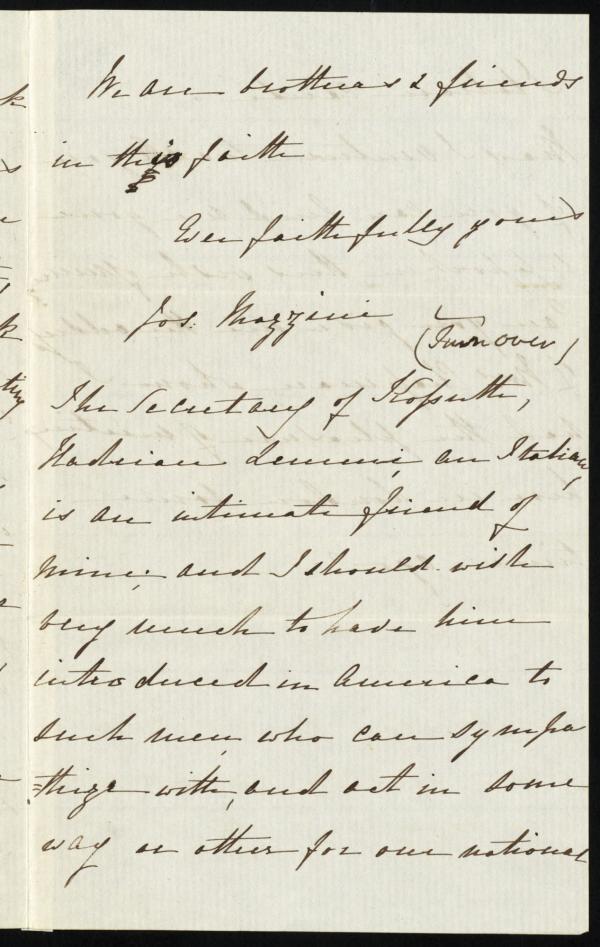 We are brothers & friends
in this faith
Ever faithfully yours
Jos. Mazzini
(Turn over)
The Secretary of Kossuth,
Hadrian Lemmi, an Italian,
is an intimate friend of
mine; and I should wish
very much to have him
introduced in America to
such men who can sympa
=thize with, and act in some
way or other for our national